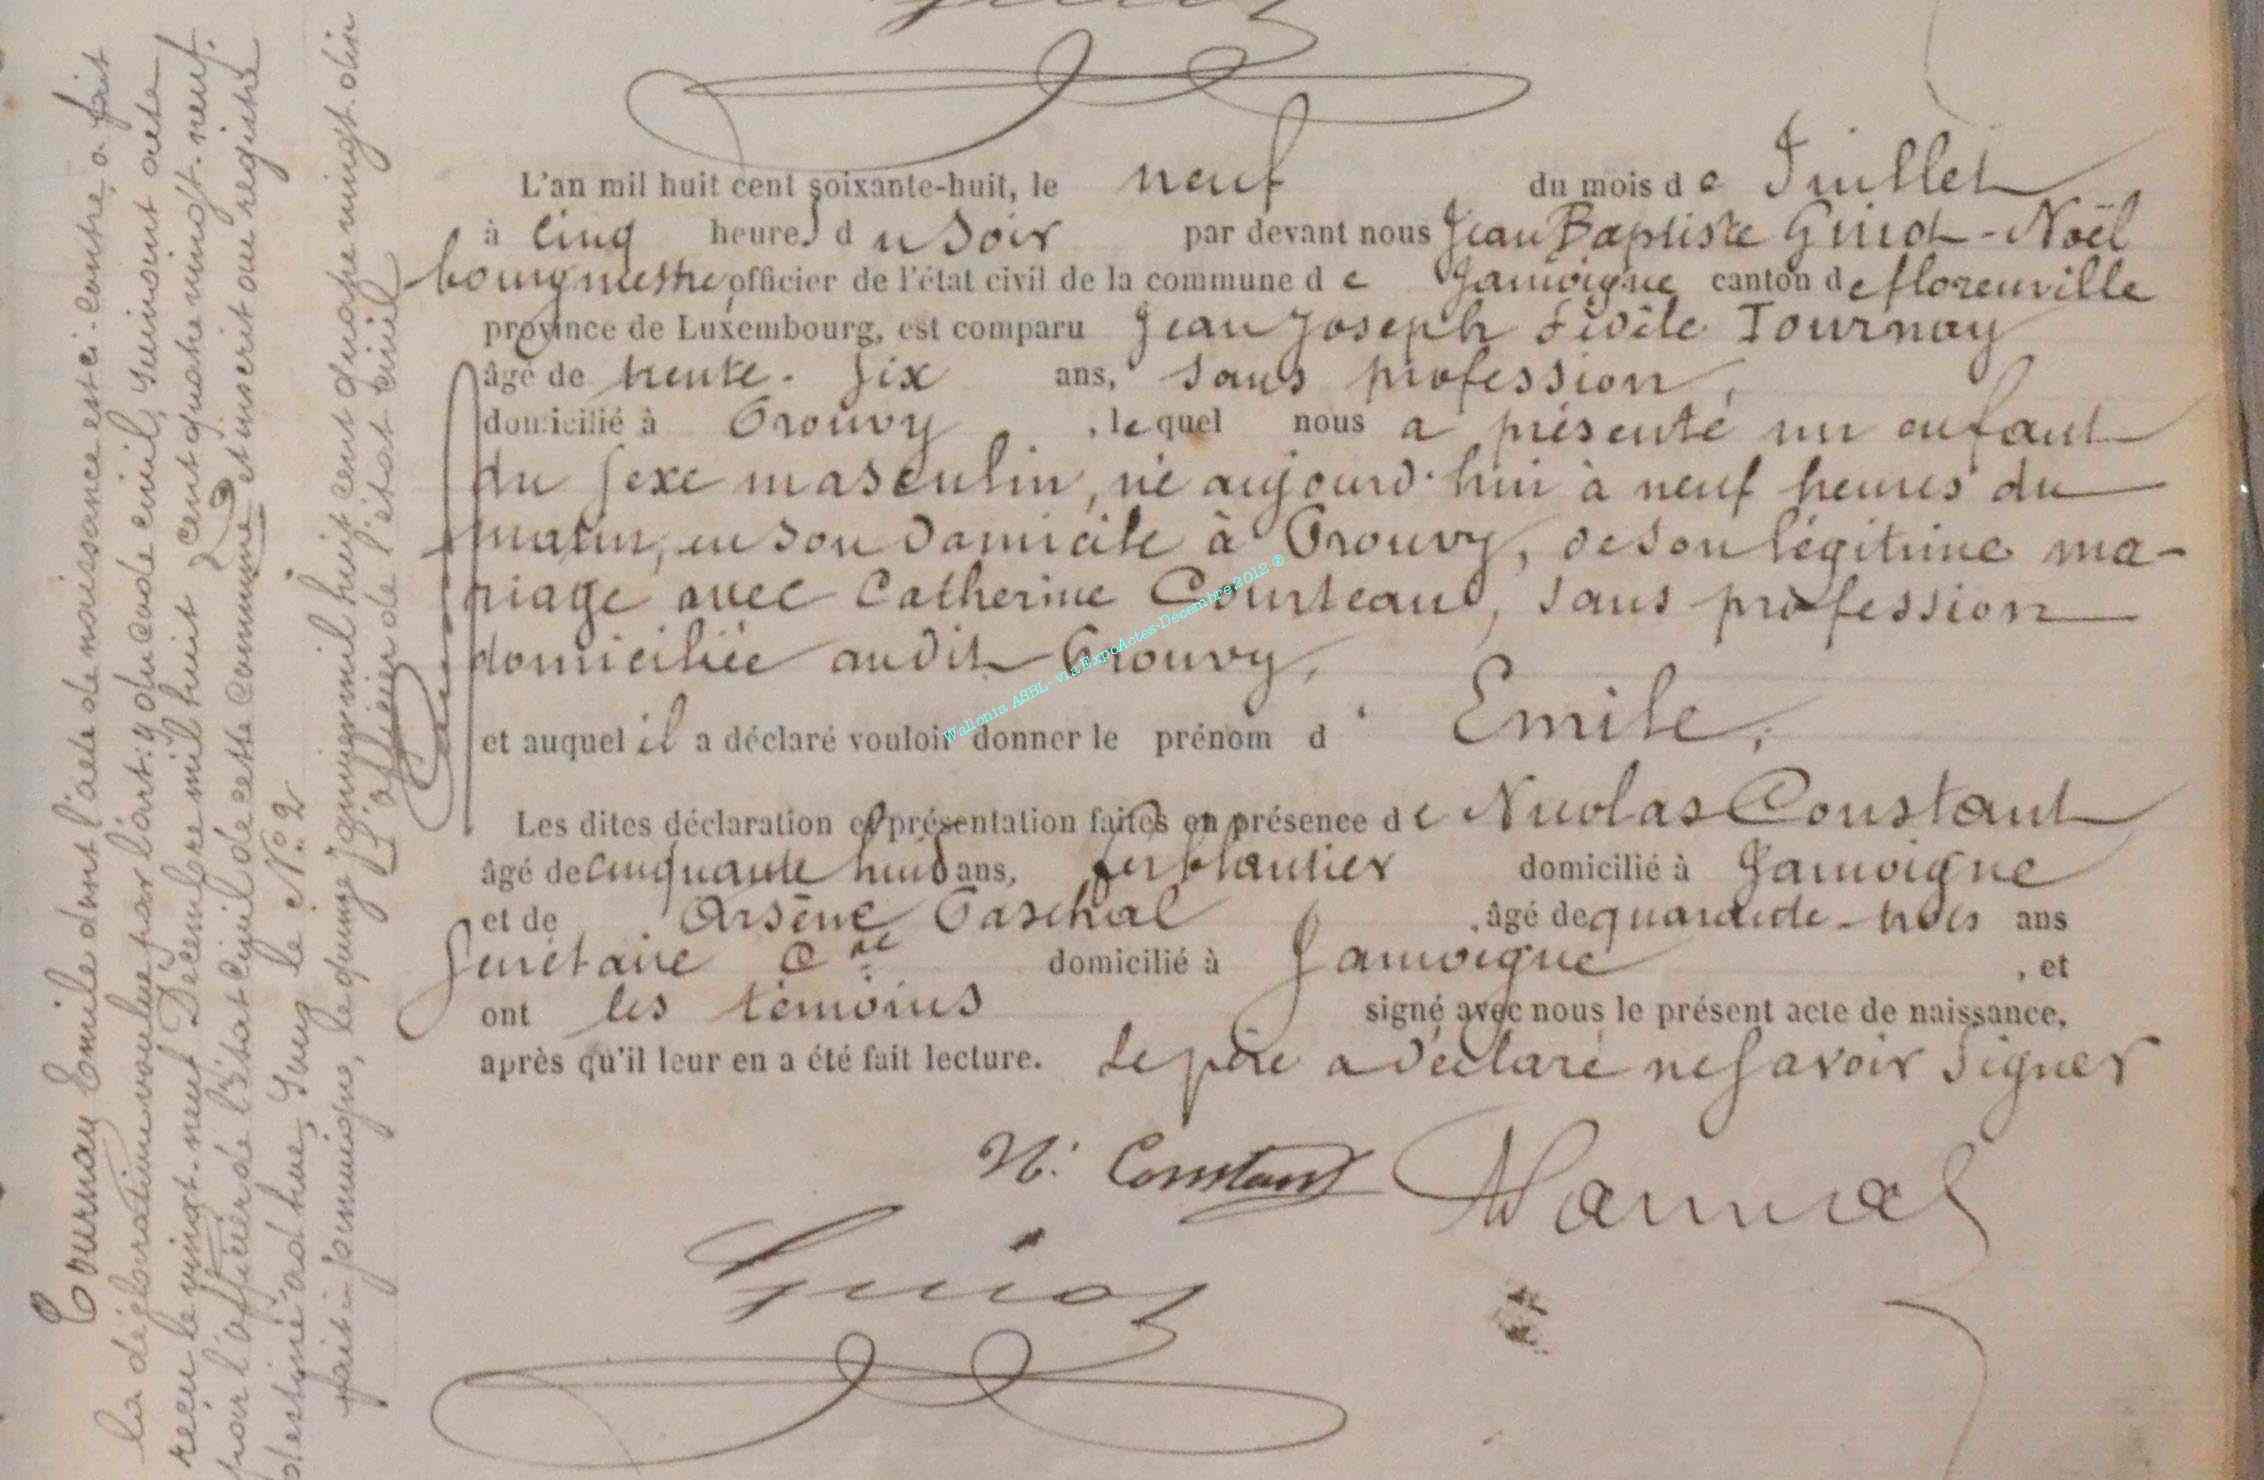 L'an mil huit cent soixante-huit, le neuf du mois de Juillet
à cinq heures du soir par devant nous Jean Baptiste Guiot-Noël
bourgmestre, officier de l'état civil de la commune de Jamoigne canton de florenville
province de Luxembourg, est comparu Jean Joseph Fidèle Tournay
âgé de trente-six ans, sans profession,
domicilié à Prouvy, lequel nous a présenté un enfant
du sexe masculin, né aujourd'hui à neuf heures du
matin, en son domicile à Prouvy, de son légitime ma-
riage avec Catherine Courteau, sans profession
domiciliée audit Prouvy,
et auquel il a déclaré vouloir donner le prénom d'Emile,
Les dites déclaration et présentation faites en présence de Nicolas Constant
âgé de cinquante huit ans, ferblantier domicilié à Jamoigne
et de Arsène Paschal, âgé de quarante-trois ans
secrétaire Cal domicilié à Jamoigne, et
ont les témoins signé avec nous le présent acte de naissance,
après qu'il leur en a été fait lecture. Le père a déclaré ne savoir signer
N. Constant
Guiot
Tournay Emile dont l'acte de naissance est ci-contre, a fait
la déclaration voulue par l'art: 9 du code civil, suivant acte
reçu le vingt-neuf Décembre mil huit cent quatre vingt-neuf,
par l'officier de l'état civil de cette commune et inscrit au registre
destiné ad hoc, sous le N° 2
fait à jamoigne, le quinze janvier mil huit cent quatre vingt dix
L'officier de l'état civil
Wallonia ASBL- via ExpoActes-Decembre 2012 ®